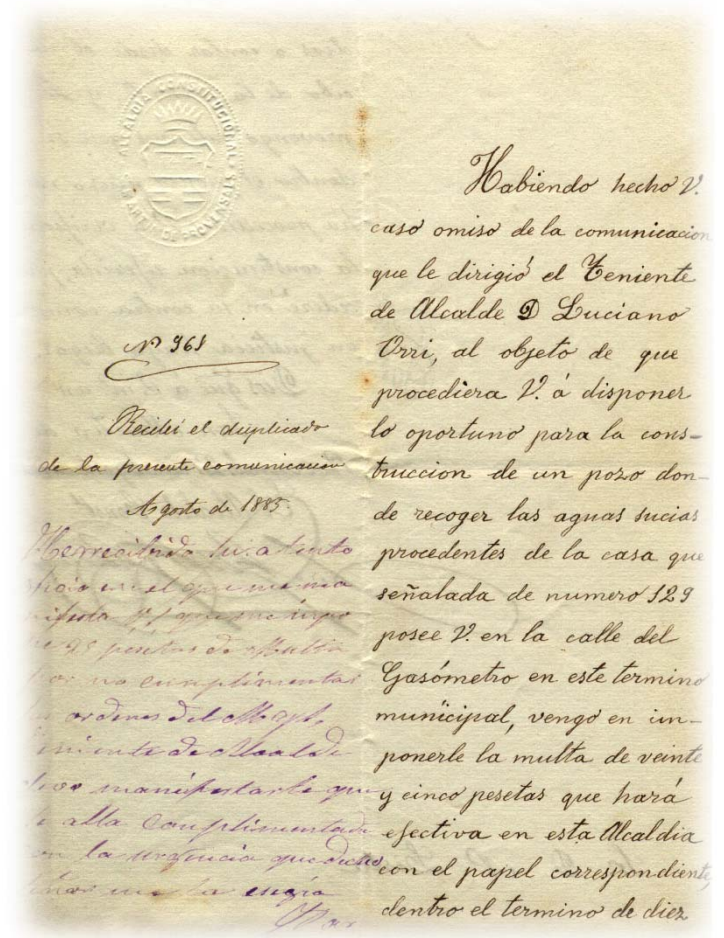 ALCALDIA CONSTITUCIONAL
SAN MARTIN DE PROVENSALS
Nº 961
Recibí el duplicado
de la presente comunicacion
Agosto de 1885.
He recibido su atento
oficio en el que me ma
nifiesta V. que me impo
ne 25 pesetas de Multa
por no cumplimentar
las ordenes del
Teniente de Alcalde
devo manifestarle que
alla Complimentada
con la urgencia que dicho
Señor me la
Habiendo hecho V.
caso omiso de la comunicacion
que le dirigió el Teniente
de Alcalde D Luciano
Orri, al objeto de que
procediera V. á disponer
lo oportuno para la cons-
truccion de un pozo don-
de recoger las aguas sucias
procedentes de la casa que
señalada de numero 129
posee V. en la calle del
Gasómetro en este termino
municipal, vengo en im-
ponerle la multa de veinte
y cinco pesetas que hará
efectiva en esta Alcaldia
con el papel correspondiente,
dentro el termino de diez